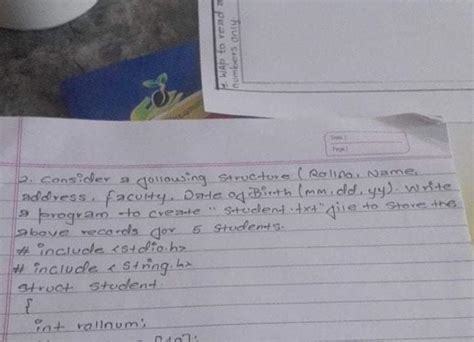 4. WAP to read a
numbers only.
Date:
Page:
2. Consider a following structure (Rollno, Name,
address, faculty, Date of Birth (mm,dd,yy). Write
a program to create "student.txt" file to store the
above records for 5 students.
# include <stdio.h>
# include <string.h>
struct student
{
int rollnum;